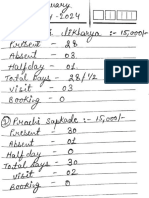 4-2024
:- 15,000/-
Present - 28
Absent - 03
Halfday - 01
Total Days - 28/1/2
Visit - 03
Booking - 0
2) Prachi Sapkade :- 15,000/-
Present - 30
Absent - 01
Halfday - 0
Total Days - 30
Visit - 02
Booking - 0